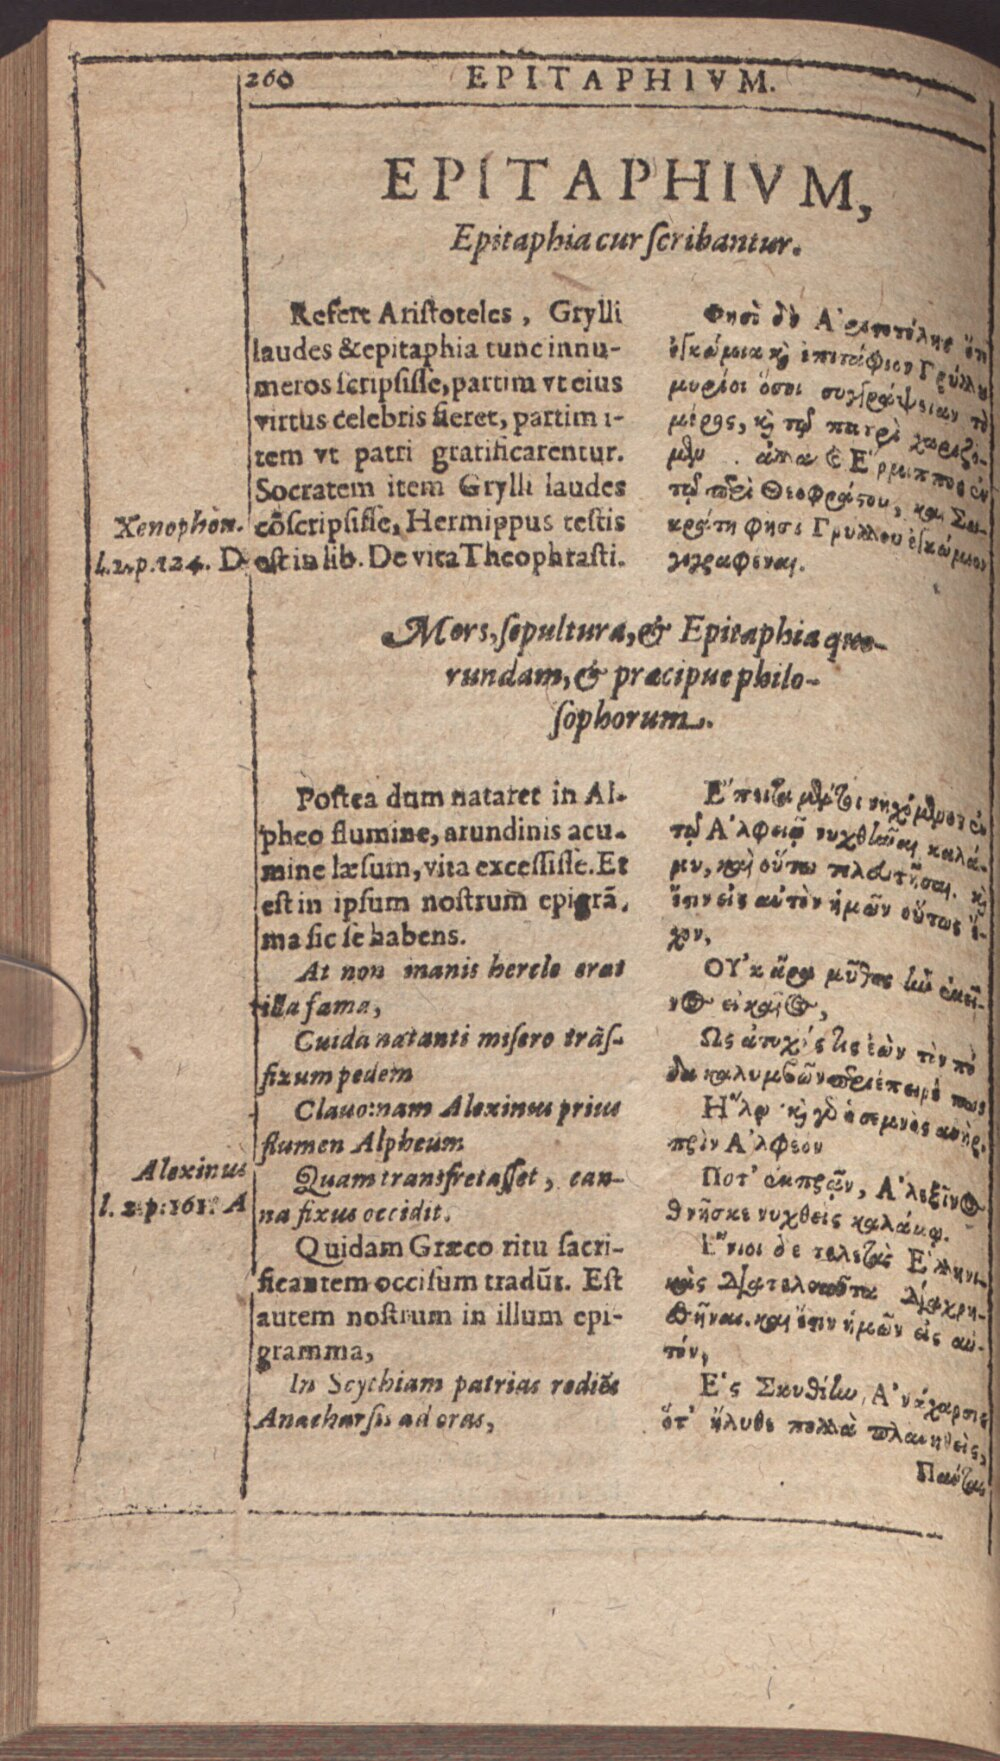 260 EPITAPHIVM.
EPITAPHIVM,
Epitaphia cur ſcribantur.
Refert Ariſtoteles, Grylli
laudes & epitaphia tunc innu-
meros ſcripſiſſe, partim vt eius
virtus celebris fieret, partim i-
tem vt patri gratificarentur.
Socratem item Grylli laudes
cōſcripſiſſe, Hermippus teſtis
eſt in lib. De vita Theophraſti.
Xenophon.
l.2.p.124. D
Φησὶ δὲ Ἀριστοτέλης ὅτι
ἐγκώμια καὶ ἐπιτάφιον Γρύλλου
μυρίοι ὅσοι συγγράψειαν τὸ
μέρος, καὶ τῷ πατρὶ χαριζό-
μενοι. ἀλλὰ καὶ Ἕρμιππος ἐν
τῷ περὶ Θεοφράστου, καὶ Σω-
κράτη φησὶ Γρύλλου ἐγκώμιον
γεγραφέναι.
Mors, ſepultura, & Epitaphia quo-
rundam, & præcipue philo-
ſophorum.
Poſtea dum nataret in Al-
pheo flumine, arundinis acu-
mine læſum, vita exceſſiſſe. Et
eſt in ipſum noſtrum epigrā-
ma ſic ſe habens.
At non inanis hercle erat
illa fama,
Cuidā natanti miſero trāſ-
fixum pedem
Clauo: nam Alexinus prius
flumen Alpheum
Quam transfretaſſet, can-
na fixus occidit.
Alexinus
l. 2. p. 161. A
Quidam Græco ritu ſacri-
ficantem occiſum tradūt. Eſt
autem noſtrum in illum epi-
gramma,
In Scythiam patrias rediēs
Anacharſis ad oras,
Ἔπειτα μέντοι νηχόμενον ἐν
τῷ Ἀλφειῷ νυχθῆναι καλά-
μῳ, καὶ οὕτω τελευτῆσαι. καὶ
ἔστιν εἰς αὐτὸν ἡμῶν οὕτως ἔ-
χον,
Οὐκ ἄρα μῦθος ἦν ἐκεῖ-
νος εἰκαῖος,
Ὡς ἀτυχής τις ἐὼν τὸν πό
δα κολυμβῶν περιέπειρέ πως
Ἥλῳ καὶ γὰρ ὁ σεμνὸς ἀνὴρ,
πρὶν Ἀλφεόν
Ποτ' ἐκπερᾶν, Ἀλεξῖνος
θνῆσκε νυχθεὶς καλάμῳ.
Ἔνιοι δὲ τελετὰς Ἑλληνι-
κὰς διατελοῦντα διαχρη-
σθῆναι. καὶ ἔστιν ἡμῶν εἰς αὐ-
τόν,
Ἐς Σκυθίην, Ἀνάχαρσις
ὅτ' ἤλυθε πολλὰ πλανηθεὶς,
Πάντας